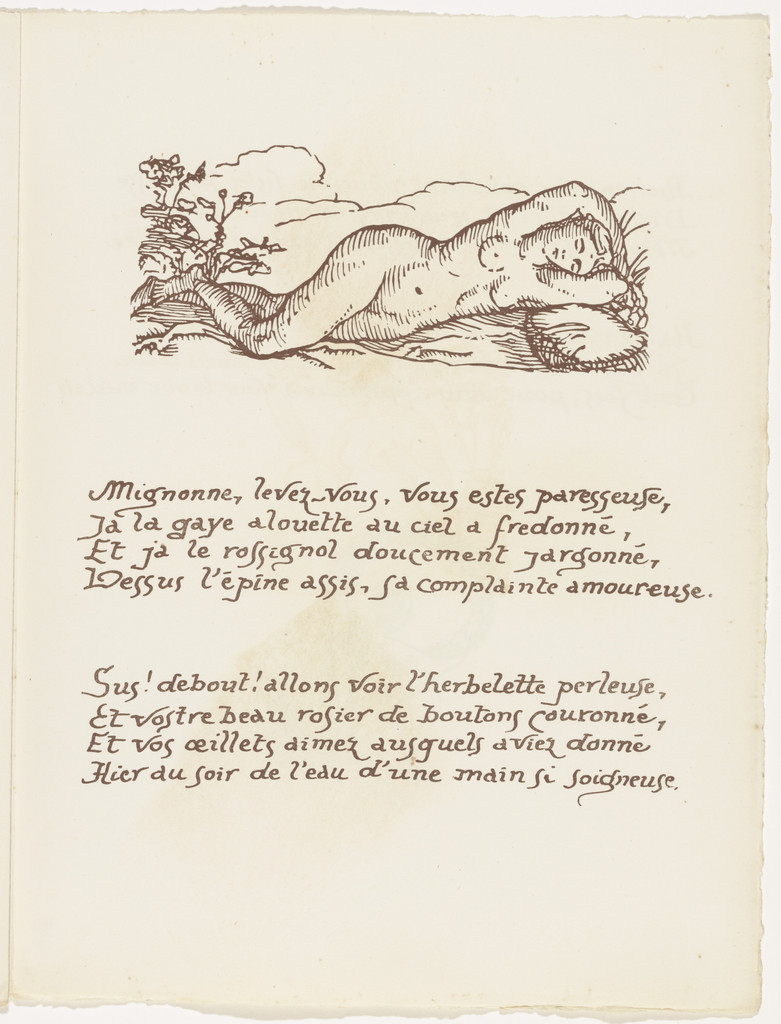 Mignonne, levez-vous, vous estes paresseuse,
Ja la gaye alouette au ciel a fredonné,
Et ja le rossignol doucement jargonné,
Dessus l'épine assis, sa complainte amoureuse.
Sus! debout! allons voir l'herbelette perleuse,
Et vostre beau rosier de boutons couronné,
Et vos œillets aimez ausquels aviez donné
Hier au soir de l'eau d'une main si soigneuse.